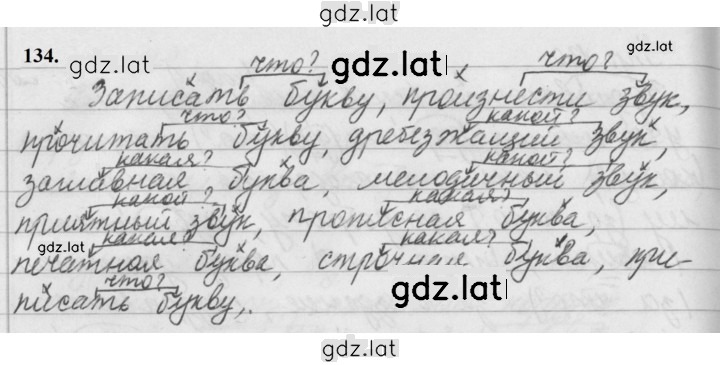 gdz.lat
134.
gdz.lat
что?
gdz.lat
что?
gdz.lat
Записать букву, произнести звук,
что? какой?
прочитать букву, дребезжащий звук,
какая? какой?
заглавная буква, мелодичный звук,
какой? какая?
приятный звук, прописная буква,
gdz.lat
какая? какая?
печатная буква, строчная буква, при-
что?
писать букву,.
gdz.lat
gdz.lat